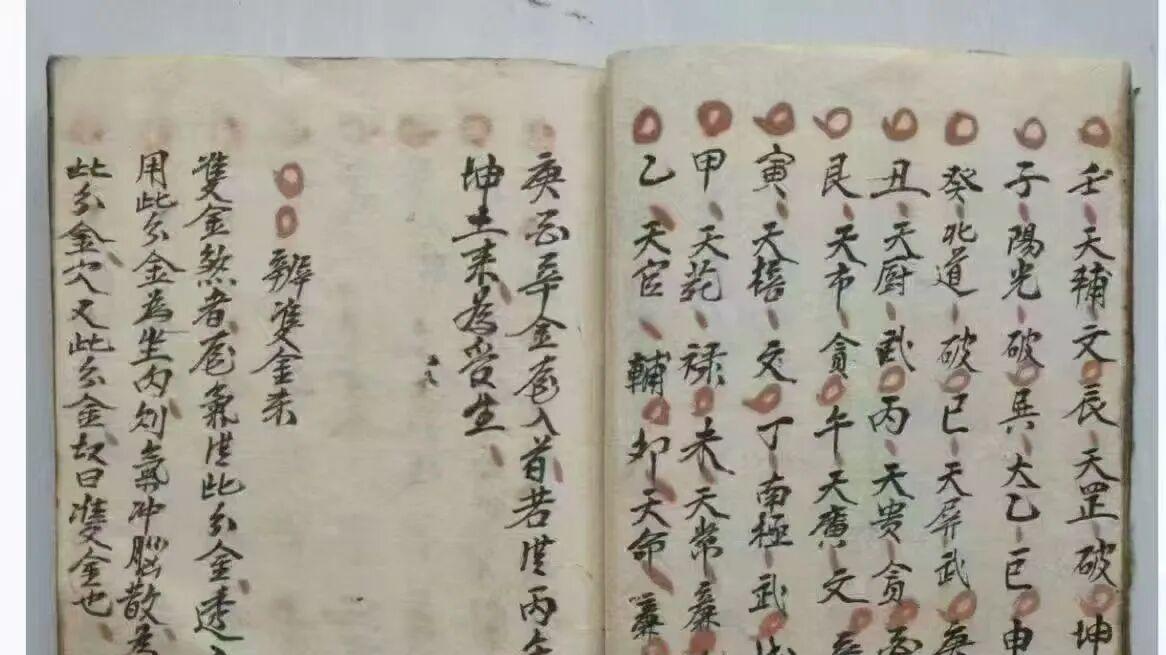 壬天輔文辰天罡破坤
子陽光破巽太乙巨申
癸北道破巳天屏武庚
丑天厨武丙天贵貪
艮天市貪午天廣文
寅天棓文丁南極武
甲天苑禄未天常廉
乙天官輔卯天命廉
庚酉辛金龍入首若
坤土来為受生
辨雙金来
雙金煞者龍氣從此分金透
用此分金為坐内刻氣冲腦散
此分金穴又此分金故曰雙金也